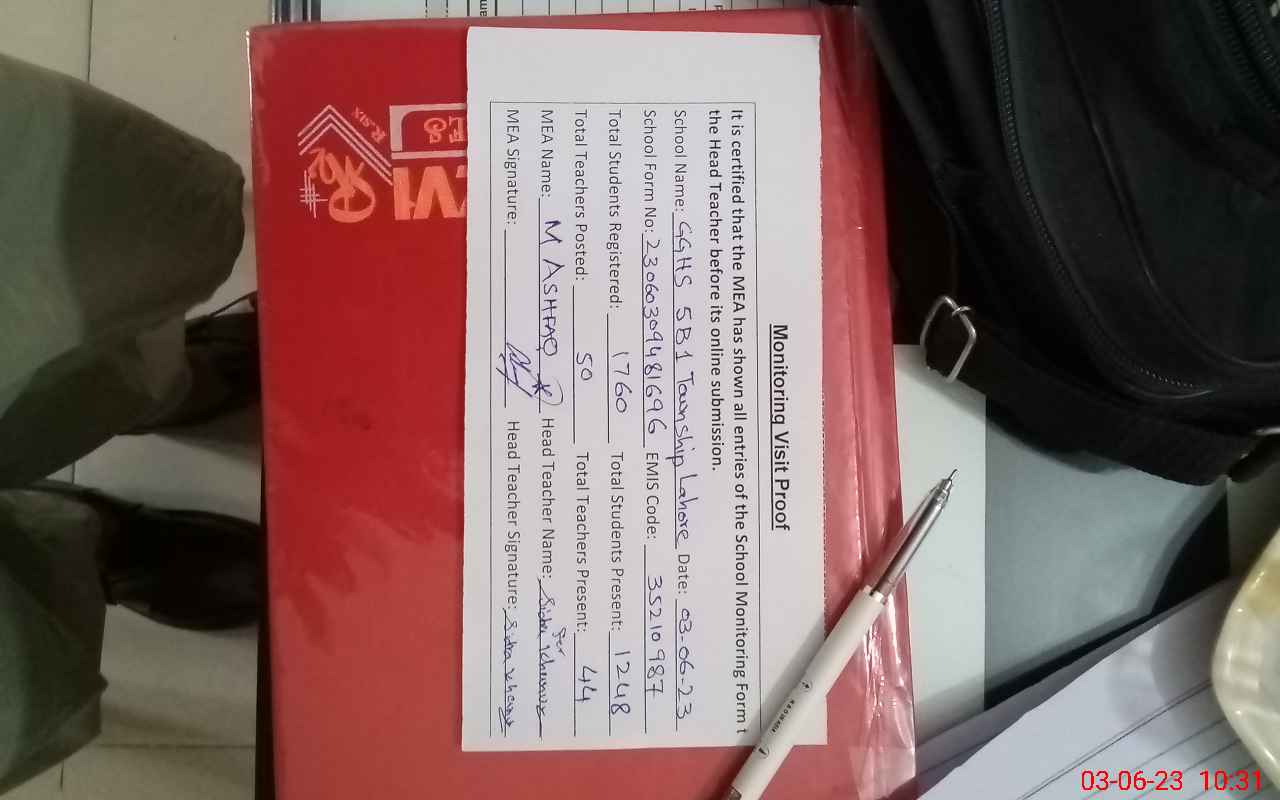 Monitoring Visit Proof
It is certified that the MEA has shown all entries of the School Monitoring Form t
the Head Teacher before its online submission.
School Name: GGHS 5B1 Township Lahore Date: 03-06-23
School Form No: 23060309481696 EMIS Code: 35210987
Total Students Registered: 1760 Total Students Present: 1248
Total Teachers Posted: 50 Total Teachers Present: 44
MEA Name: M ASHFAQ Head Teacher Name: for Sidra
MEA Signature: Head Teacher Signature: Sidra
03-06-23 10:31